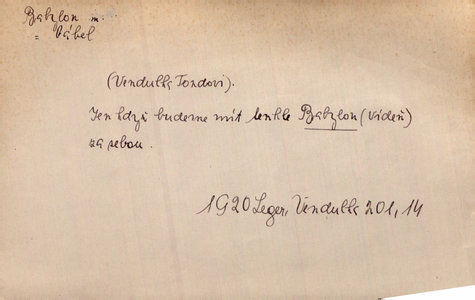 Babylon m.
= Bábel
(Vendulka Tondovi).
Jen když budeme mít tenhle Babylon (Vídeň)
za sebou.
1920 Leger, Vendulka 201, 14